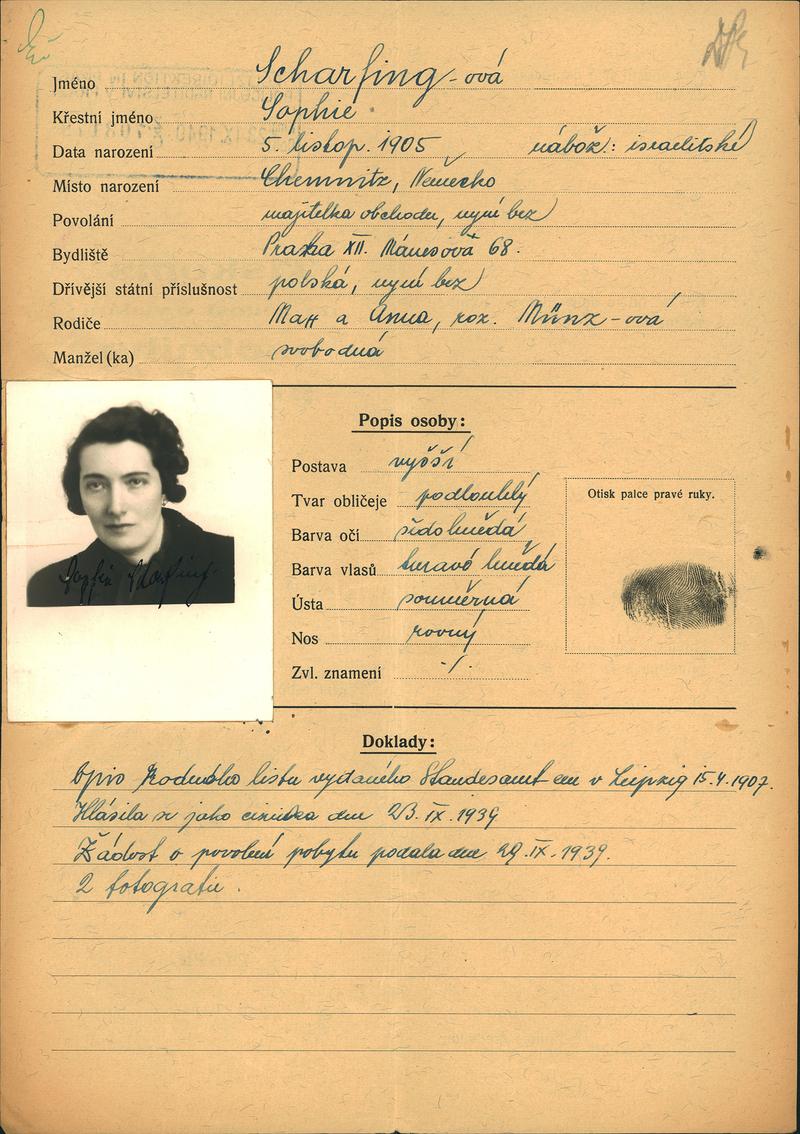 Jméno Scharfing-ová
Křestní jméno Sophie
Data narození 5. listop. 1905 nábož.: israelitské
Místo narození Chemnitz, Německo
Povolání majitelka obchodu, nyní bez
Bydliště Praha XII. Mánesová 68.
Dřívější státní příslušnost polská, nyní bez
Rodiče Max a Anna, roz. Münz-ová
Manžel(ka) svobodná
Popis osoby:
Postava vyšší
Tvar obličeje podlouhlý
Otisk palce pravé ruky.
Barva očí šedohnědá
Barva vlasů tmavě hnědá
Ústa souměrná
Nos rovný
Zvl. znamení ./.
Sophie Scharfing
Doklady:
Opis Rodného listu vydaného Standesamt-em v Leipzig 15.4.1907.
Hlásila se jako cizinka dne 23.IX.1939
Žádost o povolení pobytu podala dne 29.IX.1939.
2 fotografie.